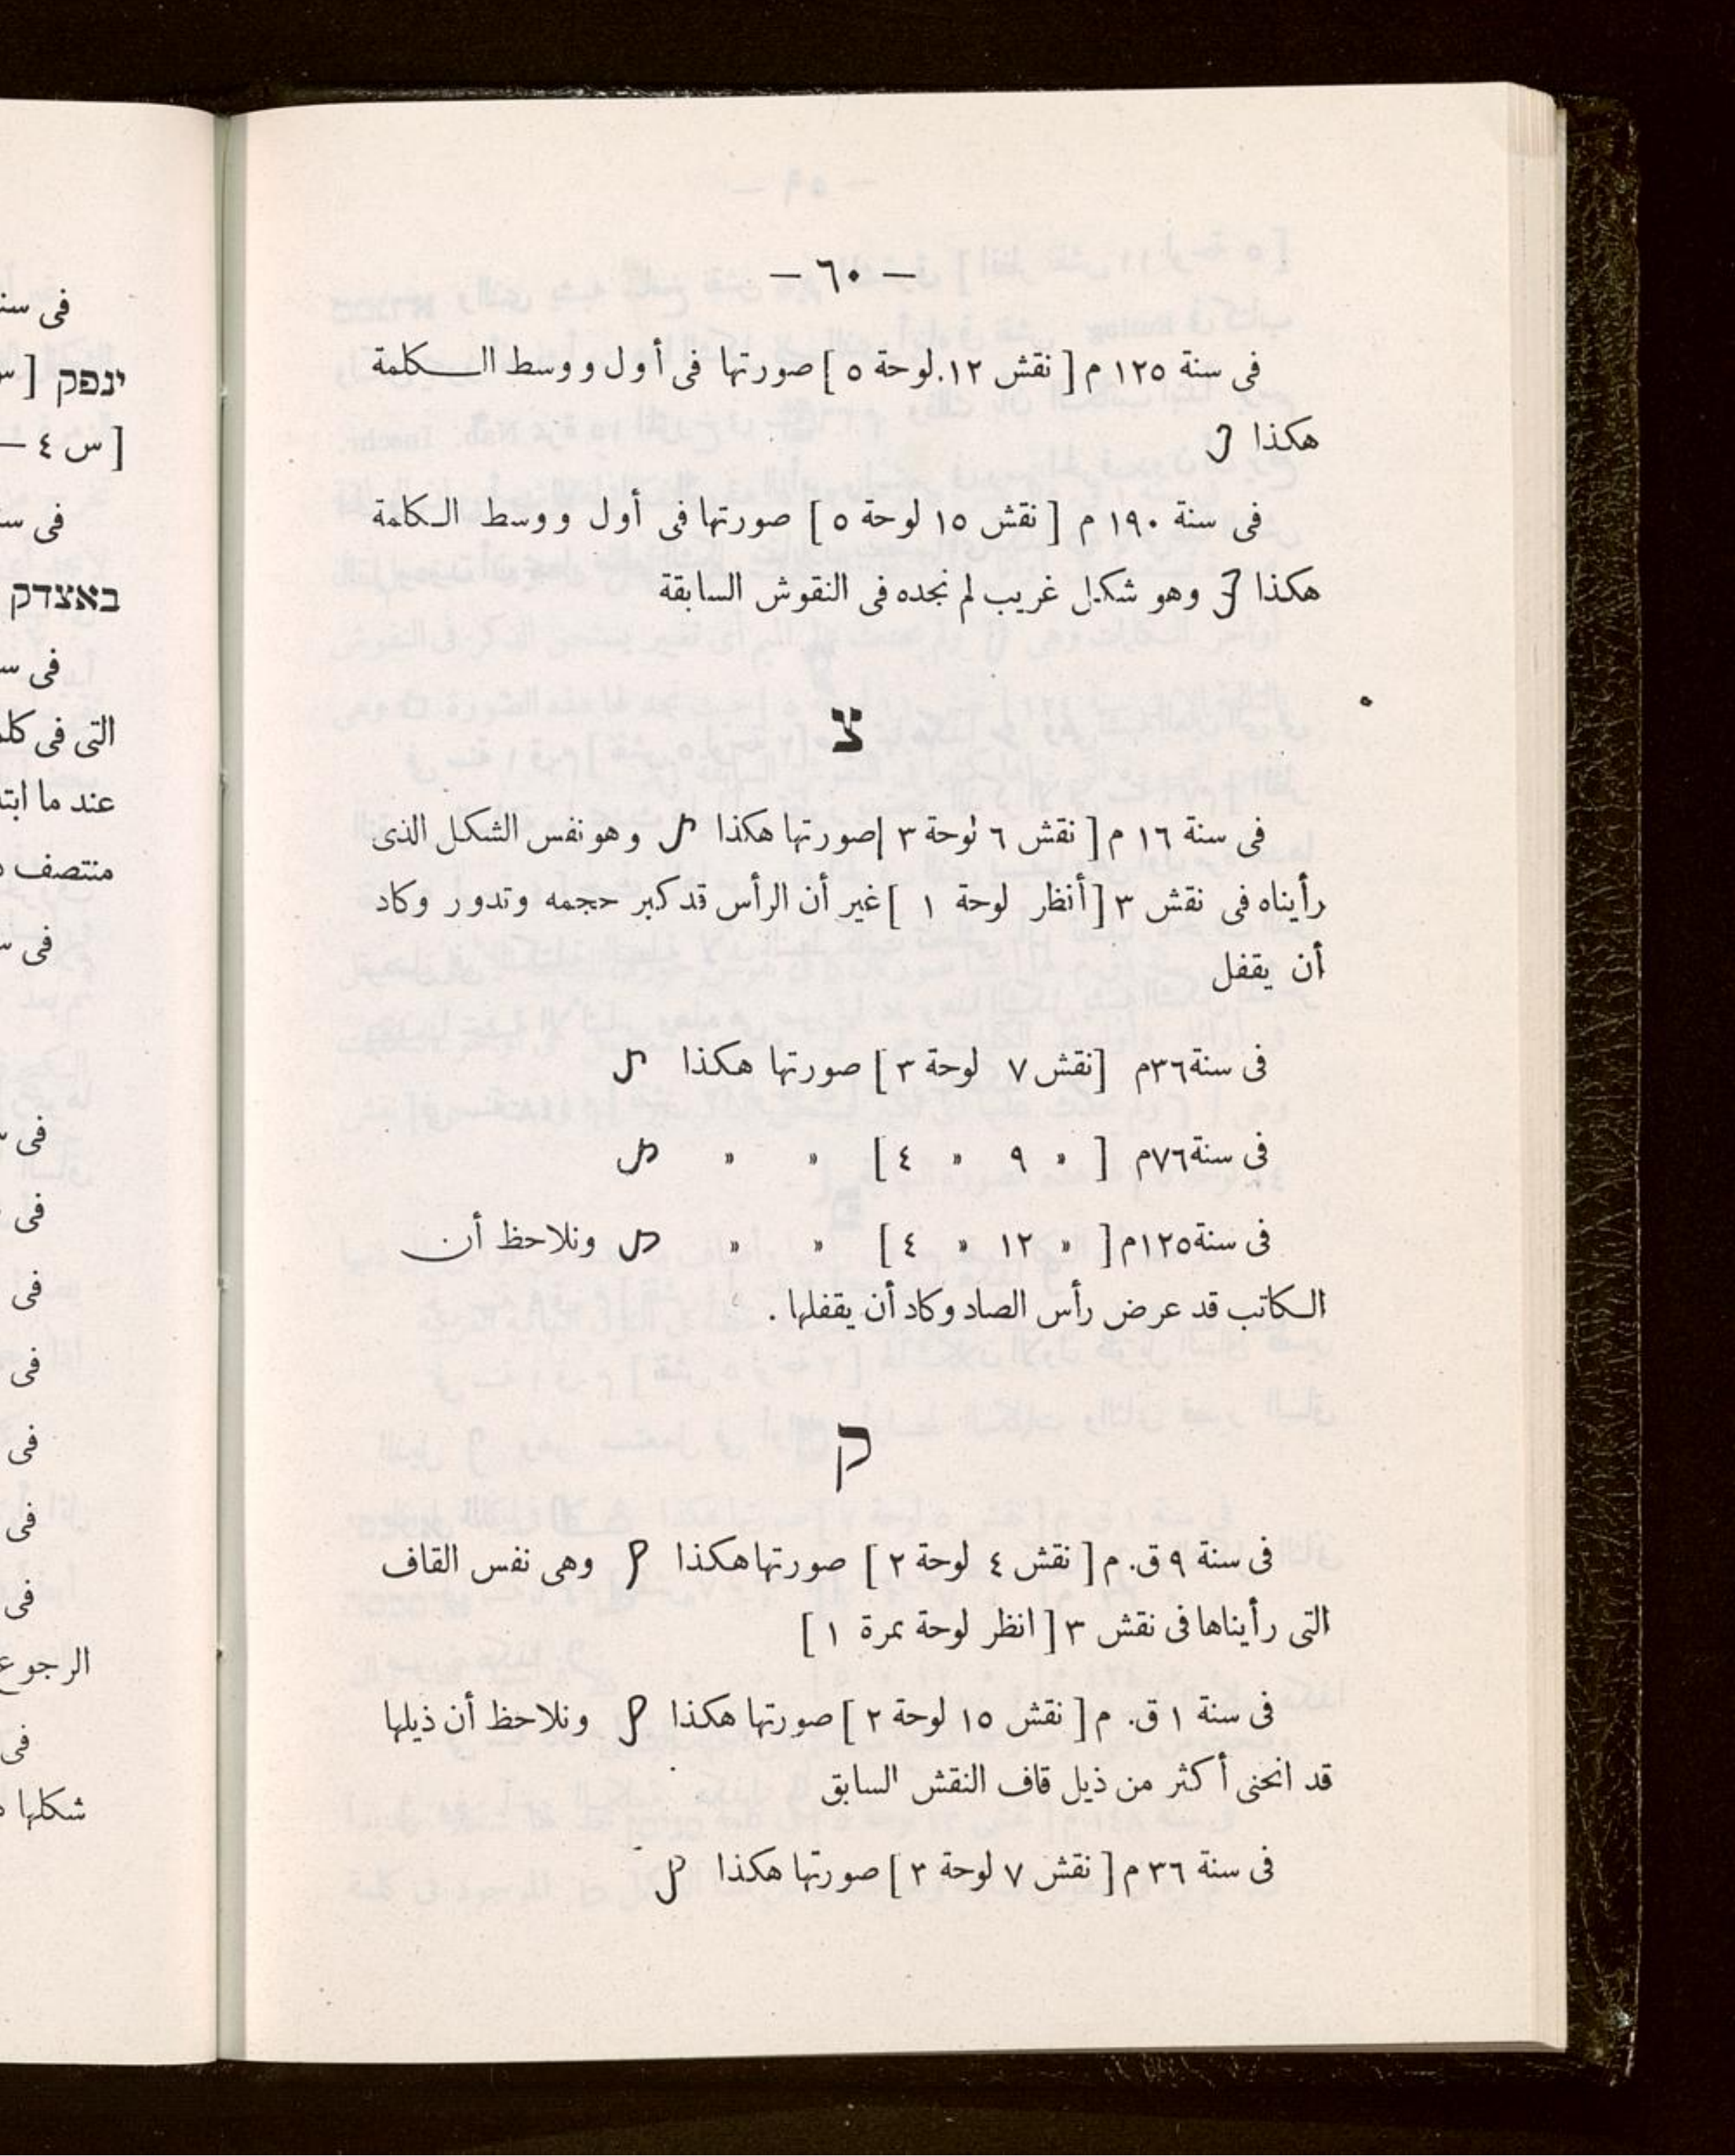 — ٦٠ —
فى سنة ١٢٥ م [ نقش ١٢.لوحة ٥ ] صورتها فى أول ووسط الكلمة
هكذا
فى سنة ١٩٠ م [ نقش ١٥ لوحة ٥ ] صورتها فى أول ووسط الكلمة
هكذا وهو شكل غريب لم نجده فى النقوش السابقة
צ
فى سنة ١٦ م [ نقش ٦ لوحة ٣ ] صورتها هكذا وهو نفس الشكل الذى
رأيناه فى نقش ٣ [ أنظر لوحة ١ ] غير أن الرأس قد كبر حجمه وتدور وكاد
أن يقفل
فى سنة ٣٦م [نقش ٧ لوحة ٣ ] صورتها هكذا
فى سنة ٧٦م [ » ٩ » ٤ ] » »
فى سنة ١٢٥م [ » ١٢ » ٤ ] » » ونلاحظ أن
الكاتب قد عرض رأس الصاد وكاد أن يقفلها .
ק
فى سنة ٩ ق. م [ نقش ٤ لوحة ٢ ] صورتها هكذا وهى نفس القاف
التى رأيناها فى نقش ٣ [ انظر لوحة نمرة ١ ]
فى سنة ١ ق. م [ نقش ١٥ لوحة ٢ ] صورتها هكذا ونلاحظ أن ذيلها
قد انحنى أكثر من ذيل قاف النقش السابق
فى سنة ٣٦ م [ نقش ٧ لوحة ٣ ] صورتها هكذا
فى
ינפק [
[ س ٤ —
فى
באצדק
فى
التى فى
عند ما
منتصف
فى
فى
فى
فى
فى
فى
فى
فى
الرجوع
فى
شكلها